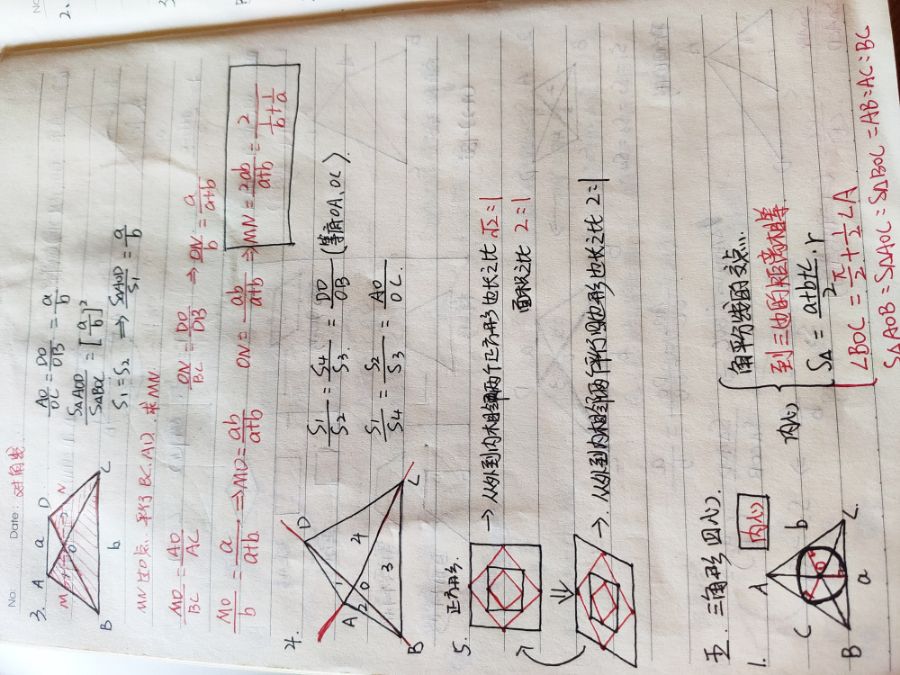 No.
Date. 对角线
3.
A a D
M N
O
B b C
AO/OC = DO/OB = a/b
S△AOD/S△BOC = [a/b]²
S₁=S₂ ⇒ S△AOD/S₁ = a/b
MN过O点, 平行BC、AD, 求MN
MO/BC = AO/AC
ON/BC = DO/DB ⇒ ON/b = a/a+b
MO/b = a/a+b ⇒ MO = ab/a+b
ON = ab/a+b ⇒ MN = 2ab/a+b = 2/(1/b + 1/a)
4.
A D
1 2 O 4
3
B C
S₁/S₂ = S₄/S₃ = DO/OB (等高OA、OC).
S₁/S₄ = S₂/S₃ = AO/OC.
5. 正方形.
→ 从外到内相邻两个正方形边长之比 √2:1
面积之比 2:1
⇓
→. 从外到内相邻两个平行四边形边长之比 2:1
五. 三角形四心.
1. 内心
A
c b
O
B a C.
内心
角平分线的交点.
到三边的距离相等
S△ = a+b+c/2 . r
∠BOC = π/2 + 1/2∠A
S△AOB = S△AOC = S△BOC = AB:AC:BC